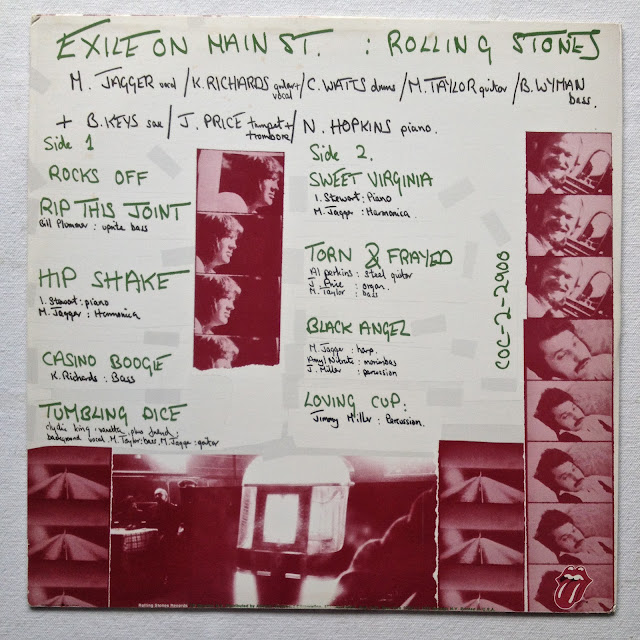 EXILE ON MAIN ST. : ROLLING STONES
M. JAGGER vocal / K. RICHARDS guitar + vocal / C. WATTS drums / M. TAYLOR guitar / B. WYMAN bass.
+ B. KEYS sax / J. PRICE trumpet + trombone / N. HOPKINS piano.
Side 1
ROCKS OFF
RIP THIS JOINT
Bill Plummer : uprite bass
HIP SHAKE
I. Stewart : piano
M. Jagger : Harmonica
CASINO BOOGIE
K. Richards : Bass
TUMBLING DICE
clydie king, vanetta, plus friend :
background vocal. M. Taylor : bass, M. Jagger : guitar
Side 2.
SWEET VIRGINIA
I. Stewart : Piano
M. Jagger : Harmonica.
TORN & FRAYED
Al perkins : steel guitar
J. Price : organ.
M. Taylor : bass
BLACK ANGEL
M. Jagger : harp.
Amyl Nitrate : marimbas
J. Miller : percussion
LOVING CUP :
Jimmy Miller : Percussion.
COC-2-2900
Rolling Stones Records